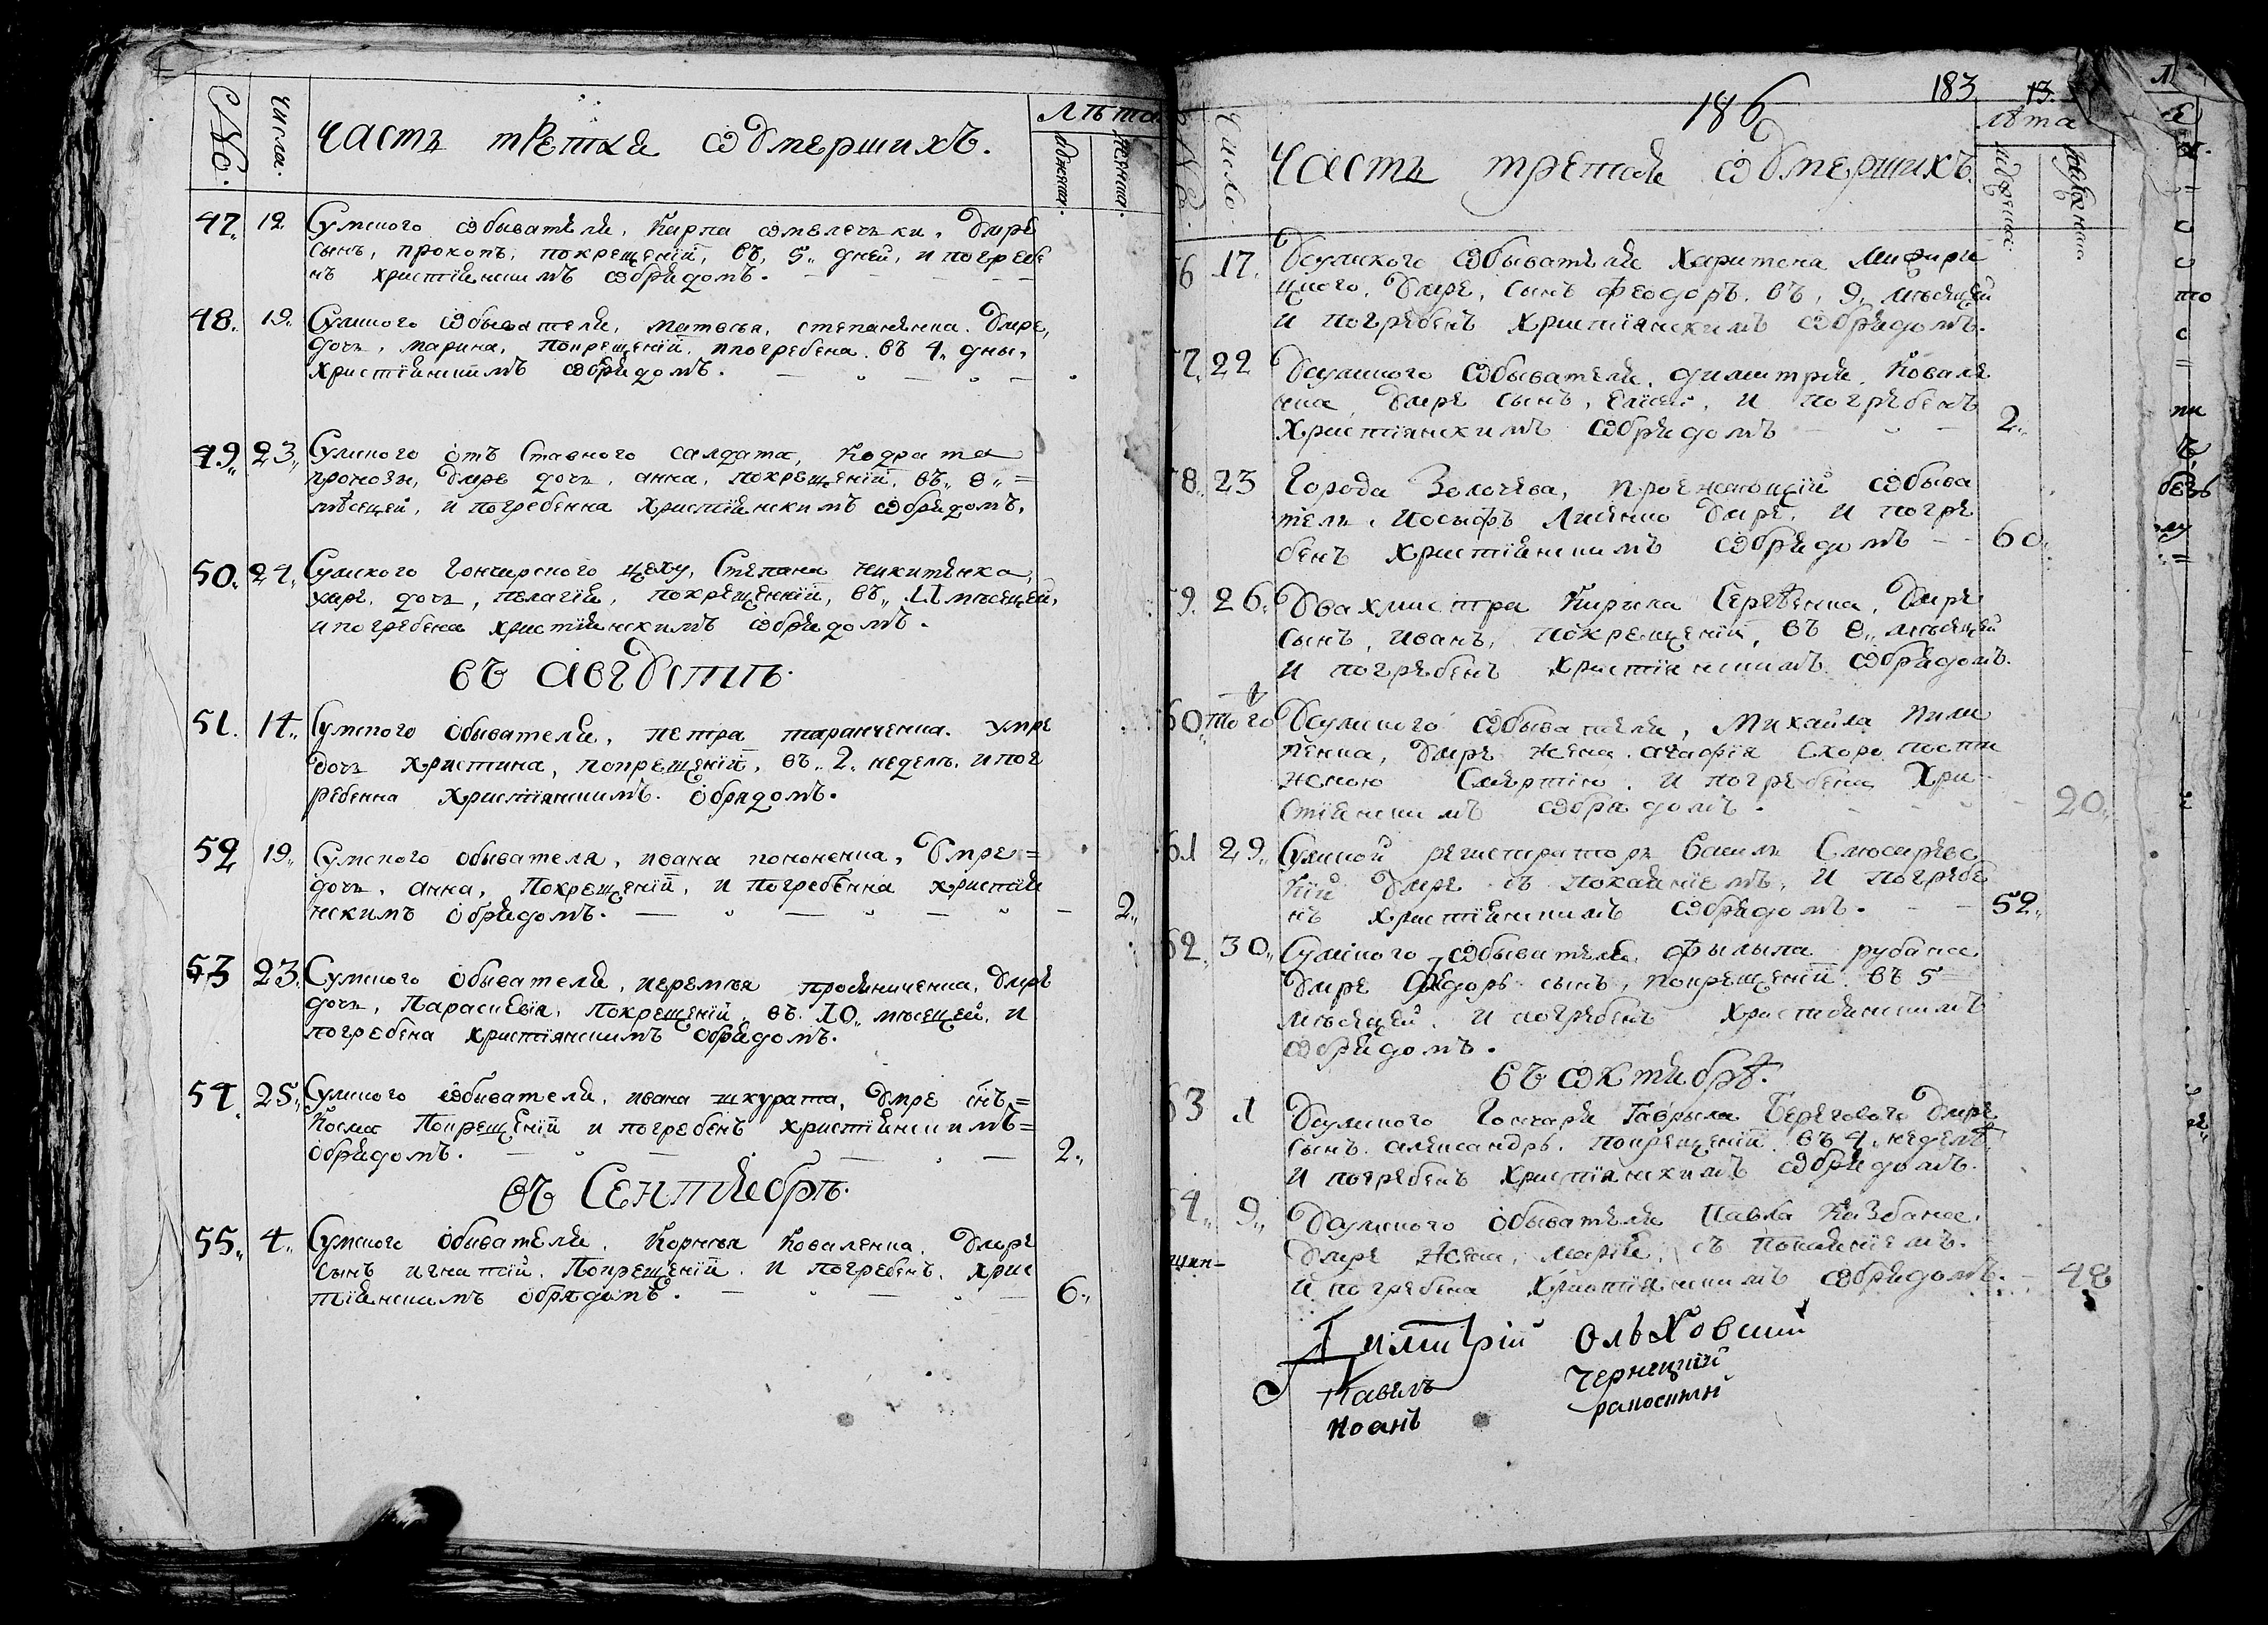 №. числа. часть третяя ѡ умершихъ. лѣта
мужеска. женска.
47. 12 Сумского ѡбывателя, Карпа ѡмелечки, умре
сынъ, прокопъ, по крещенїи, въ, 5, дней, и погребе
нъ христїянскимъ ѡбрядомъ.
48. 19. Сумского ѡбывателя, матвея, степаненка. умре,
дочь, марина, по крещенїи, и погребена въ 4, дны,
христїянскимъ ѡбрядомъ.
49. 23. Сумского отъ ставного салдата, кодрата
умре дочь, анна, по крещенїи, въ, 8, =
мѣсецей, и погребенна христїянскимъ ѡбрядомъ,
50. 24. Сумского гончарского цеху, Степана никитенка,
умре, дочь, пелагїя, по крещенїи, въ, 11 мѣсецей,
и погребена христїянскимъ ѡбрядомъ.
въ Августѣ.
51. 14. Сумского обывателя, петра таранченка. умре
дочь христина, по крещенїи, въ, 2, неделѣ, и пог
ребенна христїянскимъ обрядомъ.
52 19. Сумского обывателя, ивана кононенка, умре =
дочь, анна, по крещенїи, и погребенна христїя
нскимъ обрядомъ. 2.
53 23. Сумского обывателя, иеремѣя умре
дочь, Параскевїя, по крещенїи, въ, 10, мѣсецей, и
погребена христїянскимъ обрядомъ.
54. 25. Сумского ѡбывателя, ивана шкурата, умре снъ =
Косма по крещенїи и погребенъ христїянскимъ =
обрядомъ. 2.
въ Сентябрѣ.
55. 4. Сумского обивателя, Корнѣя Коваленка, умре
сынъ игнатїй, по крещенїи, и погребенъ, хрис
тїянскимъ обрядомъ. 6.
186 183 13.
№ число. часть третяя ѡ умершихъ. лѣта
мужеска. женска.
6 17. усумского ѡбывателя Харитона
умре, сынъ феодоръ, въ, 9, мѣсяцей
и погребенъ христїянскимъ ѡбрядомъ.
7. 22 усумского ѡбывателя, димитрїя, Ковале
нка, умре сынъ, елисей, и погребенъ
христїянскимъ ѡбрядомъ 2.
8. 23 Города Золочева, проежающїй ѡбыва
тель, Иосифъ Лисенко умре, и погре
бенъ христїянскимъ ѡбрядомъ 60.
9. 26. у вахмистра Кирила Сергѣенка, умре
сынъ, иванъ, по крещенїи, въ 8, мѣсяцей
и погребенъ христїянскимъ ѡбрядомъ.
60. того усумского ѡбывателя, Михаила Пили
пенка, умре жена агафїя скоро пости
жною смертїю, и погребена хри
стїянскимъ ѡбрядомъ. 20.
61 29. Сумской регистраторъ Василь Слюсаревс
кїй умре съ покаянїемъ, и погребе
нъ христїянскимъ ѡбрядомъ. 52.
62. 30. Сумского ѡбывателя, фылыпа рубана
умре Федоръ сынъ, по крещенїи въ 5 =
мѣсяцей, и погребенъ христїянскимъ
ѡбрядомъ.
въ ѡктябрѣ.
63 1 усумского гончаря Гаврыла Берегового умре
сынъ александръ, по крещенїи въ 4, неделѣ,
и погребенъ христїянскимъ ѡбрядомъ.
64. 9. усумского обывателя Павла Казбана,
умре жена, марїя, съ покаянїемъ.
и погребена христїянскимъ ѡбрядомъ. 48
Димитрїй Ольховскїй
Павелъ Чернецкїй
Иоанъ